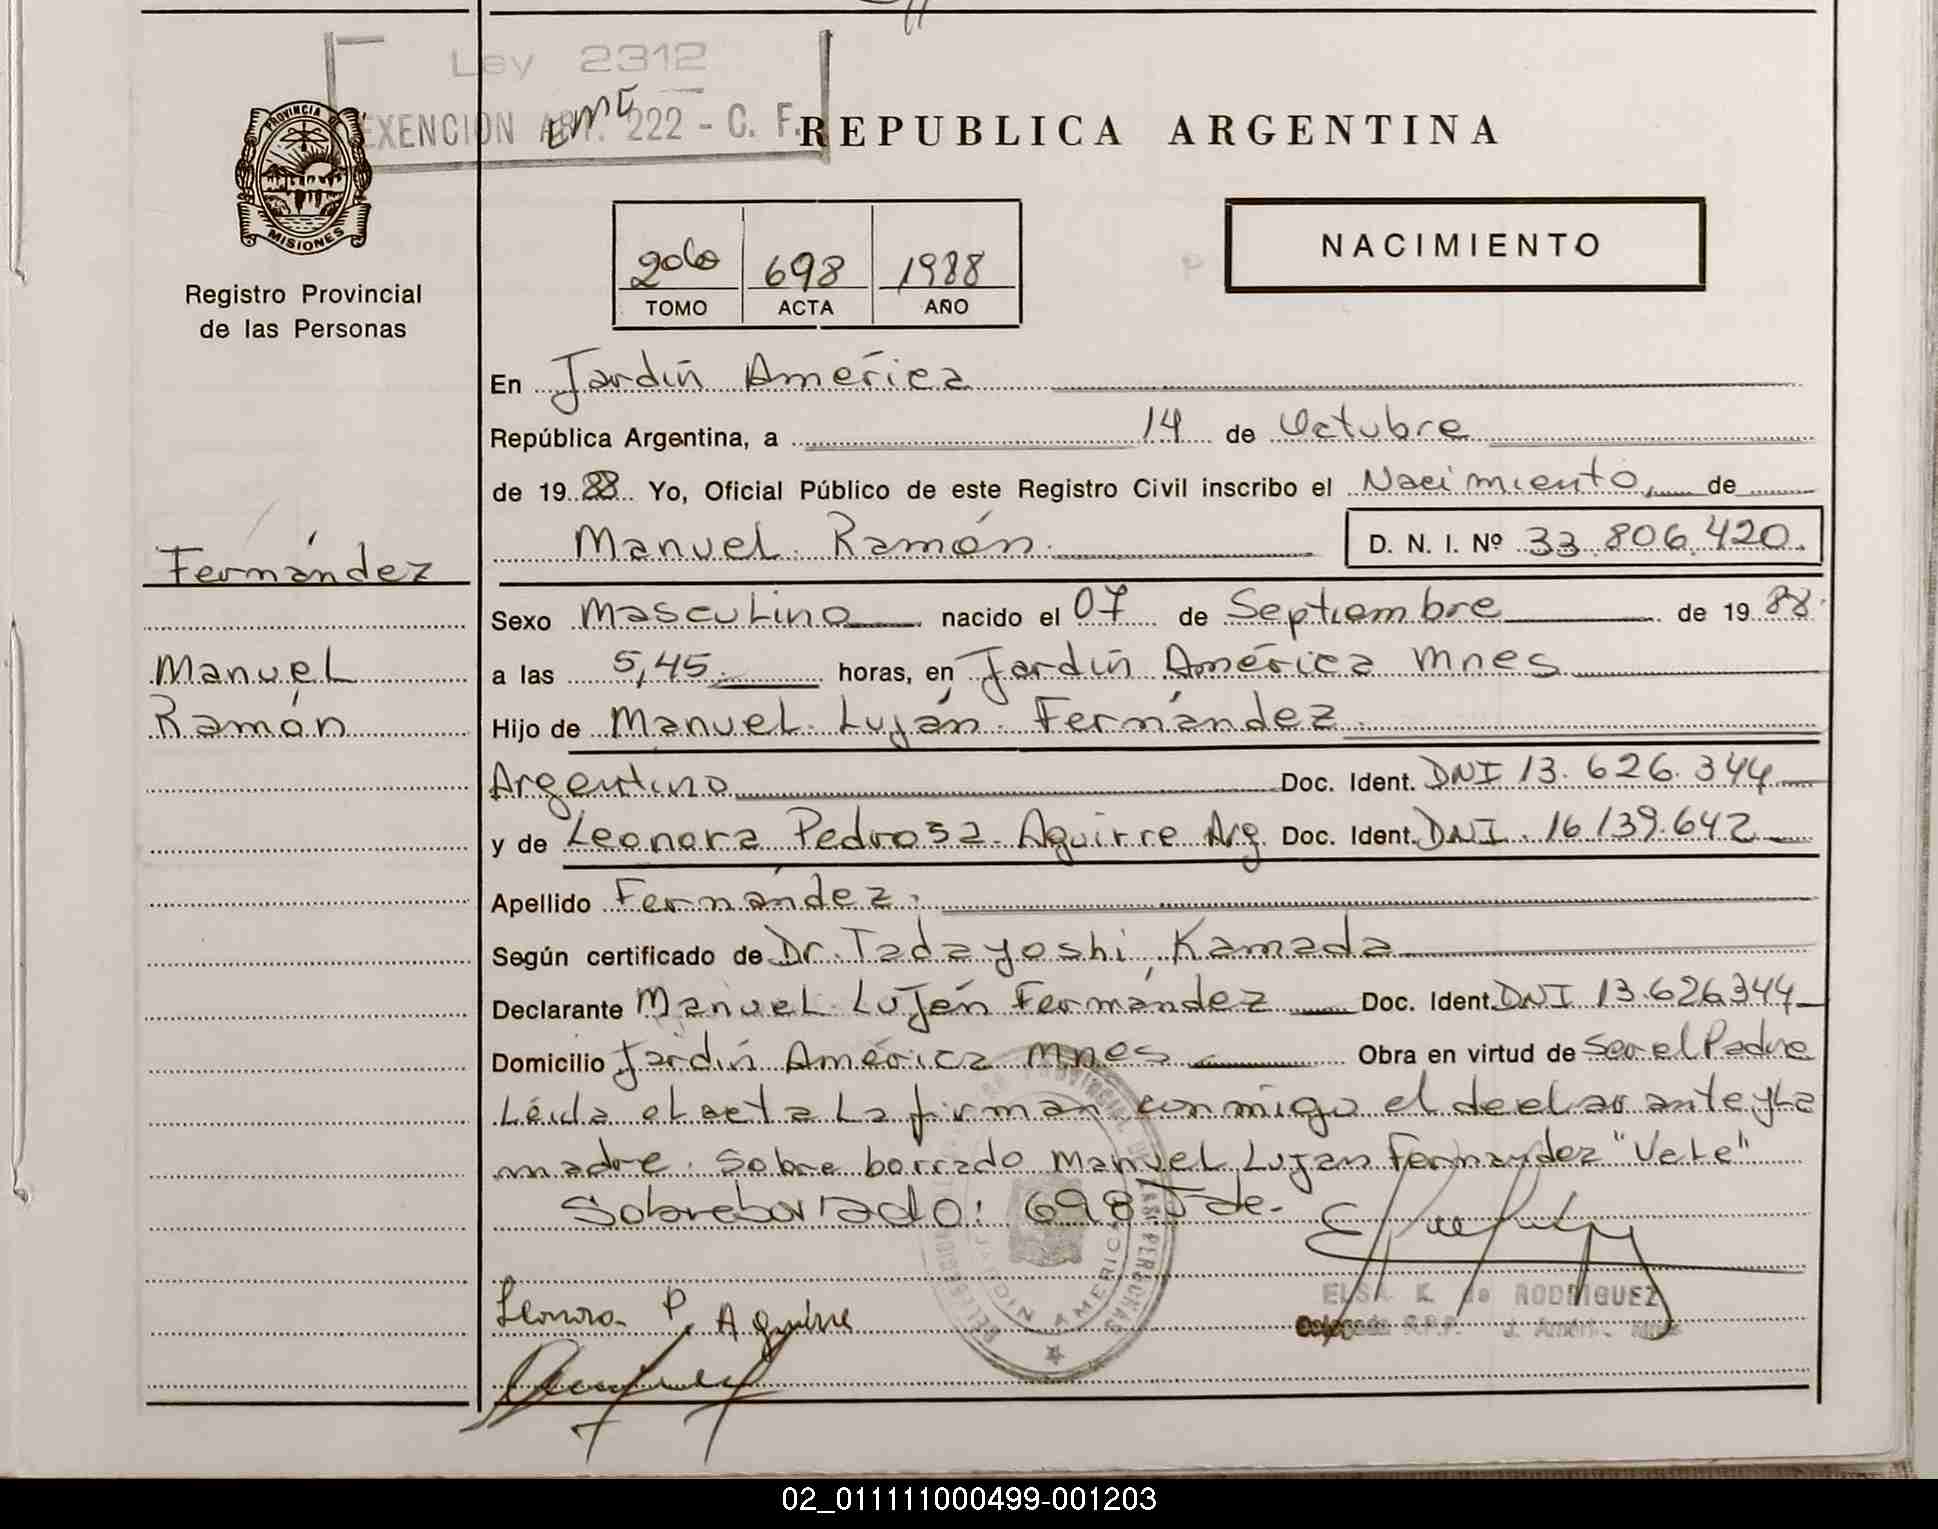 Ley 2312
EXENCION ART. 222 - C. F.
PROVINCIA DE
MISIONES
Registro Provincial
de las Personas
REPUBLICA ARGENTINA
2do 698 1988
TOMO ACTA AÑO
NACIMIENTO
En Jardín América
República Argentina, a 14 de Octubre
de 1988 Yo, Oficial Público de este Registro Civil inscribo el Nacimiento, de
Manuel Ramón. D. N. I. Nº 33.806.420.
Fernández
Manuel
Ramón
Sexo Masculino nacido el 07 de Septiembre de 1988.
a las 5,45 horas, en Jardín América Mnes
Hijo de Manuel Luján Fernández.
Argentino Doc. Ident. DNI 13.626.344
y de Leonora Pedrosa Aguirre Arg. Doc. Ident. DNI. 16.139.642
Apellido Fernández.
Según certificado de Dr. Tadayoshi Kamada
Declarante Manuel Luján Fernández Doc. Ident. DNI 13.626344
Domicilio Jardín América Mnes Obra en virtud de Ser el Padre
Leída el acta la firman conmigo el declarante y la
madre. Sobre borrado Manuel Lujan Fernandez "Vale"
Sobreborrado: 698
JARDIN AMERICA
Leonora P. Aguirre
ELSA K. de RODRIGUEZ
Delegada R.P.P. J. Améri. Mnes
02_011111000499-001203